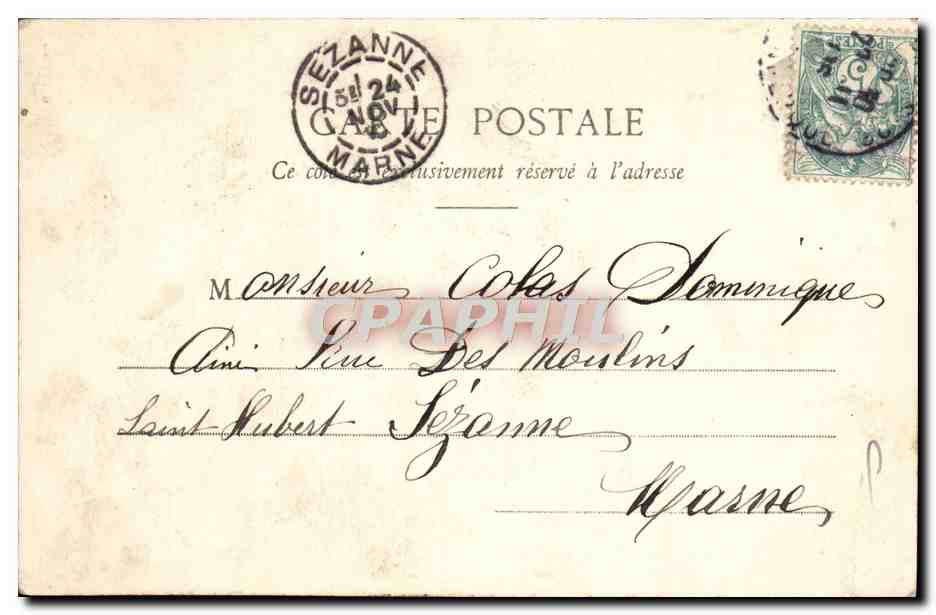 SEZANNE
5E 24
NOV
MARNE
POSTES
5
CARTE POSTALE
Ce côté est exclusivement réservé à l'adresse
Monsieur Colas Dominique
CPAPHIL
Ainé Rue Des Moulins
Saint Hubert Sézanne
Marne